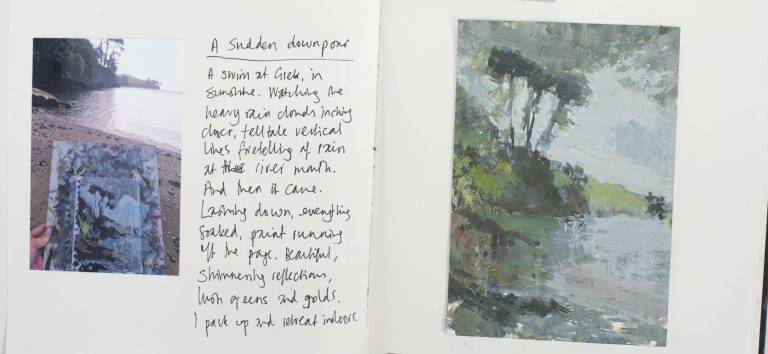 A sudden downpour
A swim at Creek, in
sunshine. Watching the
heavy rain clouds inching
closer, telltale vertical
lines foretelling of rain
at the river mouth.
And then it came.
Lashing down, everything
soaked, paint running
off the page. Beautiful,
shimmering reflections,
lush greens and golds.
I pack up and retreat indoors.